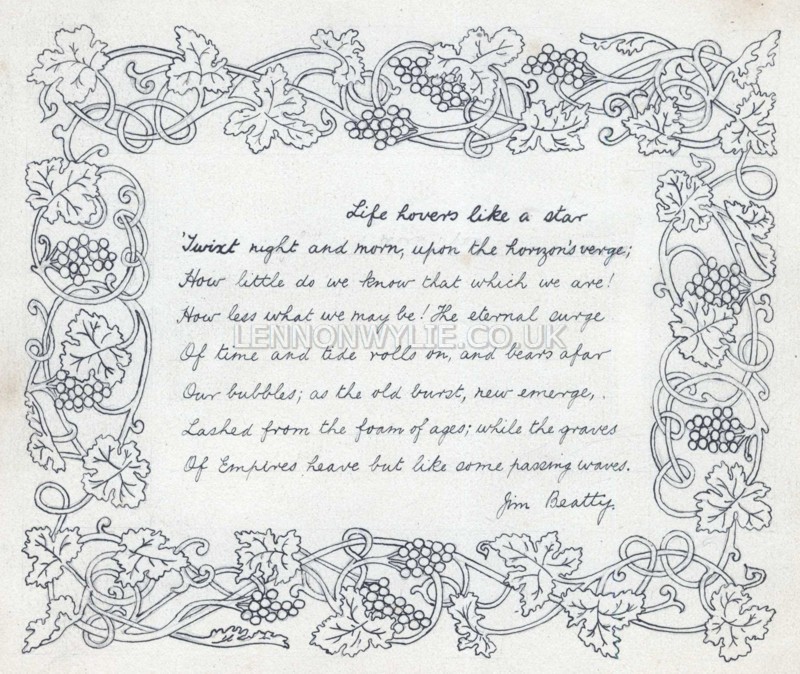 Life hovers like a star
'Twixt night and morn, upon the horizon's verge;
How little do we know that which we are!
How less what we may be! The eternal surge
LENNONWYLIE.CO.UK
Of time and tide rolls on, and bears afar
Our bubbles; as the old burst, new emerge,
Lashed from the foam of ages; while the graves
Of Empires heave but like some passing waves.
Jim Beatty.